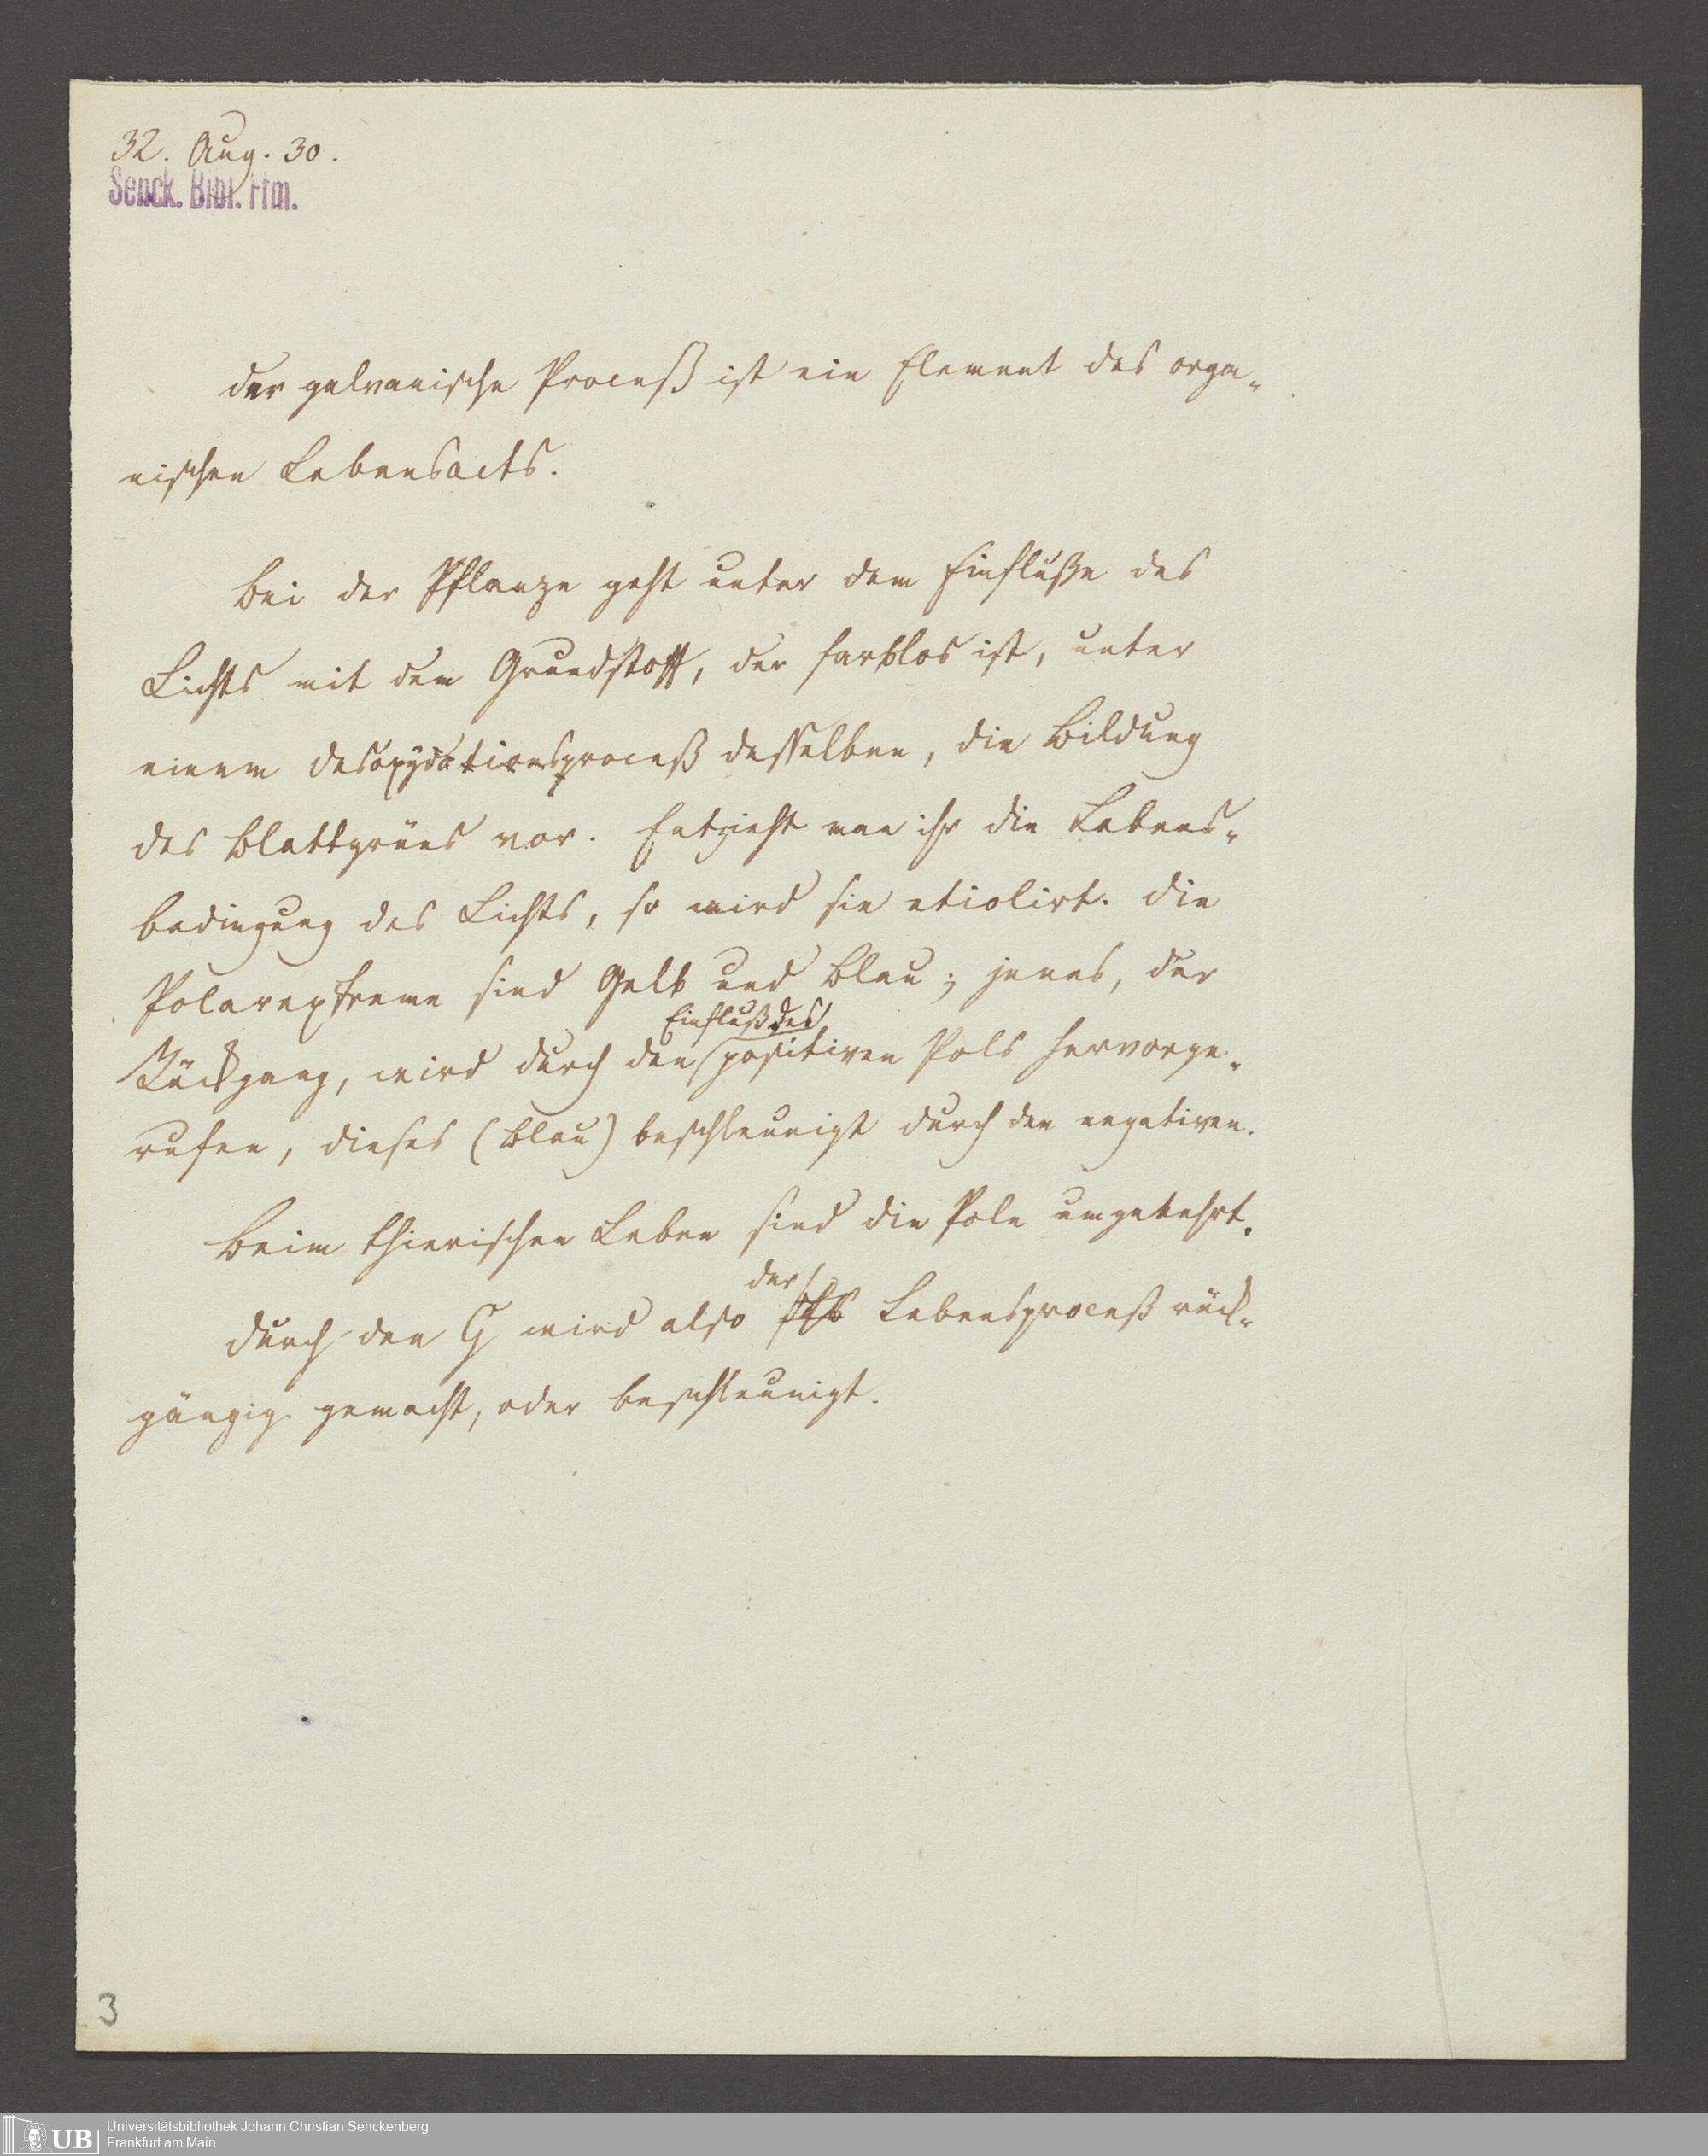 32. Aug. 30.
Senck. Bibl. Ffm.
der galvanische Proceß ist ein Element des orga-
nischen Lebensacts.
Bei der Pflanze geht unter dem Einfluße des
Lichts mit dem Grundstoff, der farblos ist, unter
einem Desoxydationsproceß desselben, die Bildung
des Blattgrüns vor. Entzieht man ihr die Lebens-
bedingung des Lichts, so wird sie etiolirt. Die
Polarextreme sind Gelb und Blau; jenes, der
Einfluß des
Rückgang, wird durch den positiven Pols hervorge-
rufen, dieses (Blau) beschleunigt durch den negativen.
Beim thierischen Leben sind die Pole umgekehrt.
der
durch den G wird also Lebensproceß rück-
gängig gemacht, oder beschleunigt.
3
UB
Universitätsbibliothek Johann Christian Senckenberg
Frankfurt am Main